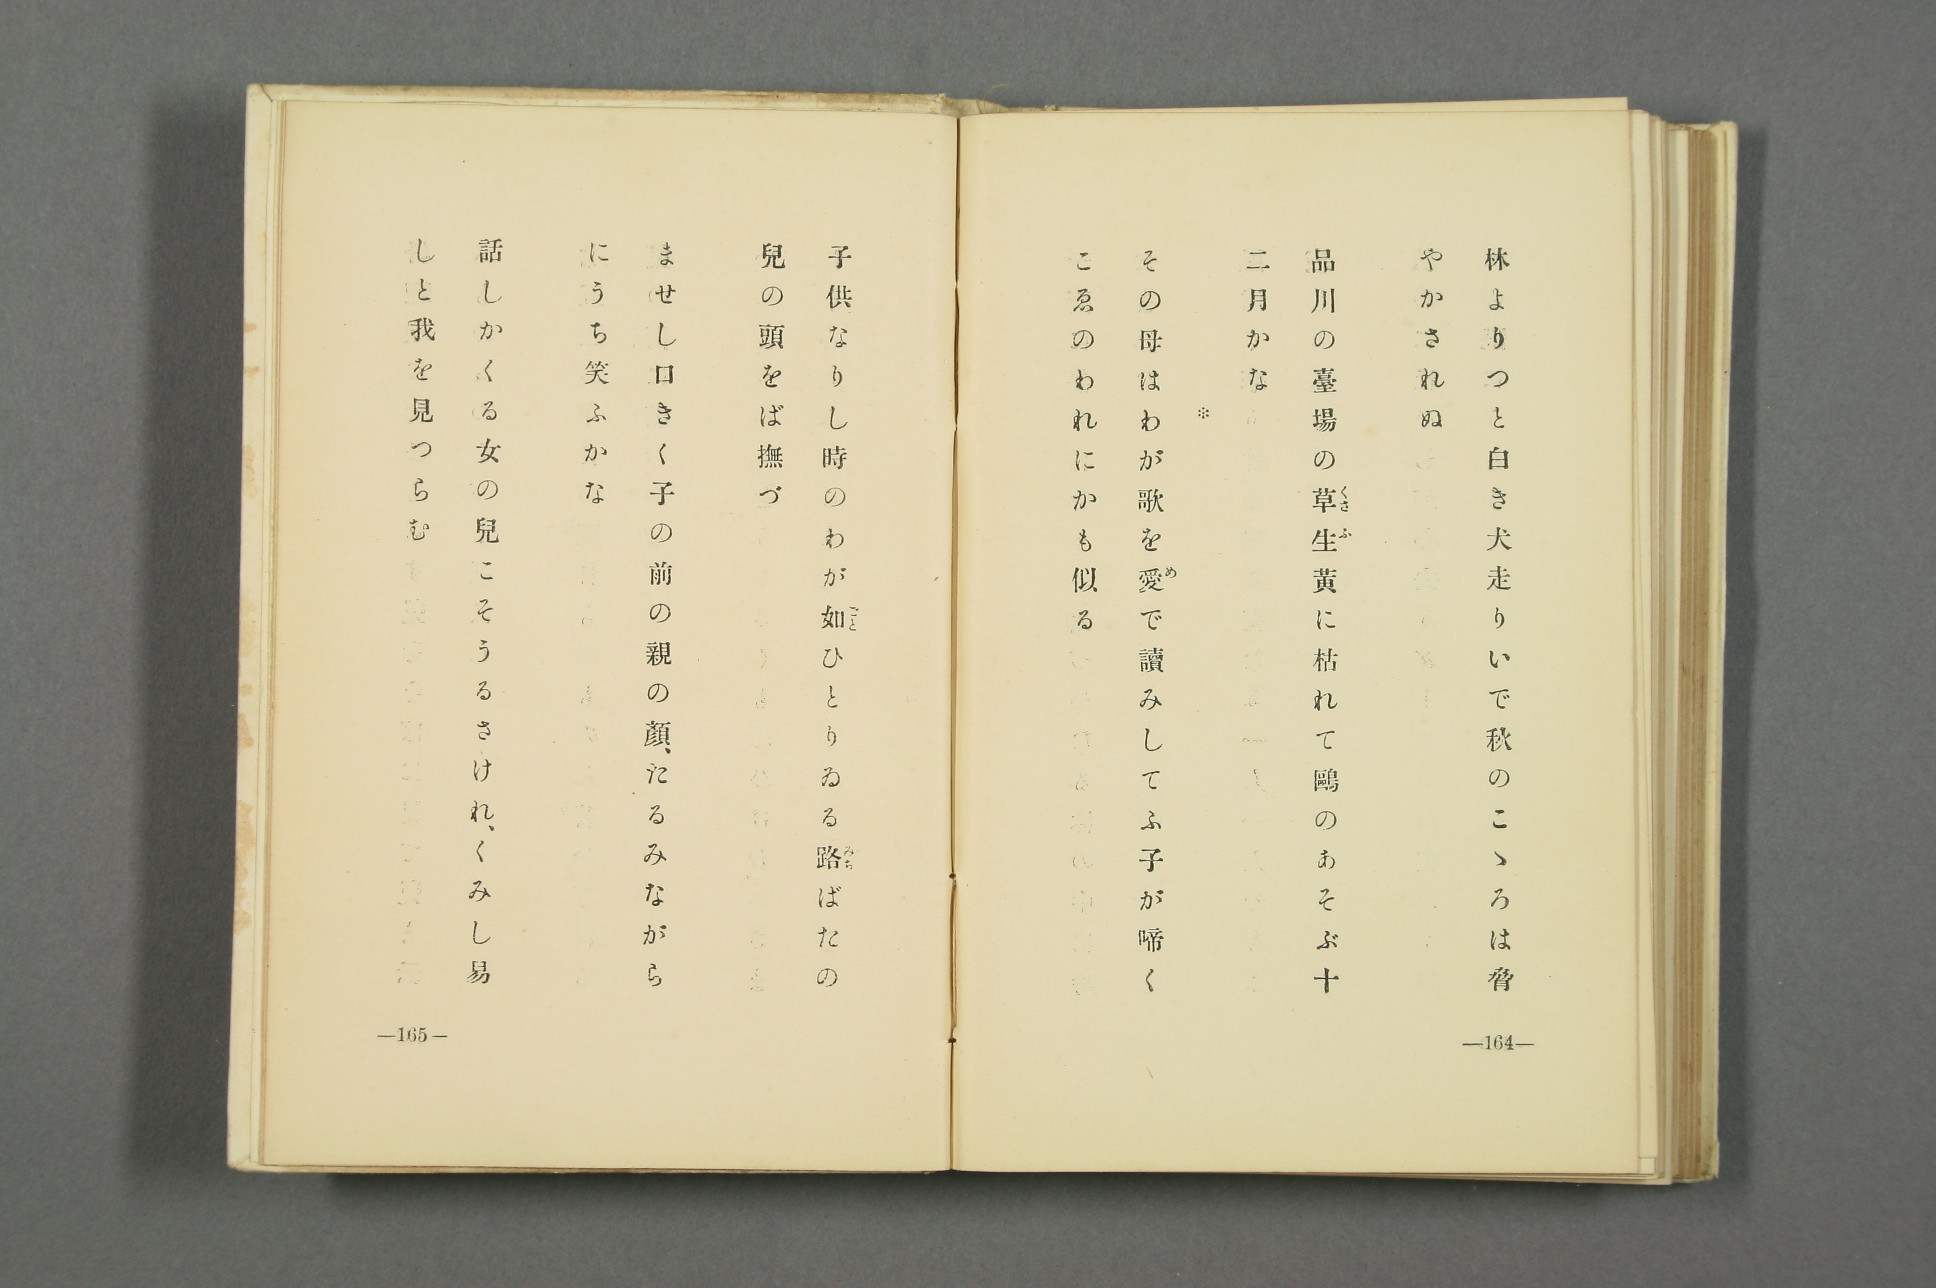 林よりつと白き犬走りいで秋のこゝろは脅
やかされぬ
品川の臺場の草生黄に枯れて鷗のあそぶ十
くさふ
二月かな
＊
その母はわが歌を愛で讀みしてふ子が啼く
め
こゑのわれにかも似る
—164—
子供なりし時のわが如ひとりゐる路ばたの
ごと
みち
兒の頭をば撫づ
ませし口きく子の前の親の顏、たるみながら
にうち笑ふかな
話しかくる女の兒こそうるさけれ、くみし易
しと我を見つらむ
—165—